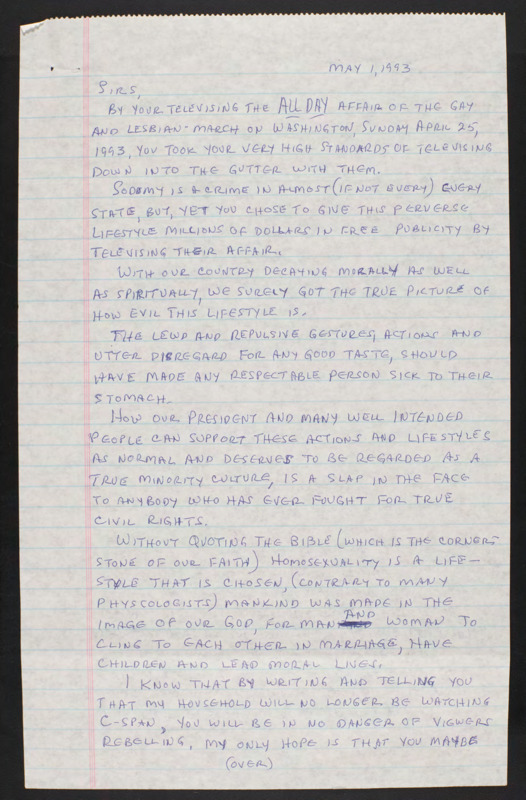 MAY 1, 1993
SIRS,
BY YOUR TELEVISING THE ALL DAY AFFAIR OF THE GAY
AND LESBIAN MARCH ON WASHINGTON, SUNDAY APRIL 25,
1993, YOU TOOK YOUR VERY HIGH STANDARDS OF TELEVISING
DOWN INTO THE GUTTER WITH THEM.
SODOMY IS A CRIME IN ALMOST (IF NOT EVERY) EVERY
STATE, BUT, YET YOU CHOSE TO GIVE THIS PERVERSE
LIFESTYLE MILLIONS OF DOLLARS IN FREE PUBLICITY BY
TELEVISING THEIR AFFAIR.
WITH OUR COUNTRY DECAYING MORALLY AS WELL
AS SPIRITUALLY, WE SURELY GOT THE TRUE PICTURE OF
HOW EVIL THIS LIFESTYLE IS.
THE LEWD AND REPULSIVE GESTURES, ACTIONS AND
UTTER DISREGARD FOR ANY GOOD TASTE, SHOULD
HAVE MADE ANY RESPECTABLE PERSON SICK TO THEIR
STOMACH.
HOW OUR PRESIDENT AND MANY WELL INTENDED
PEOPLE CAN SUPPORT THESE ACTIONS AND LIFESTYLES
AS NORMAL AND DESERVES TO BE REGARDED AS A
TRUE MINORITY CULTURE, IS A SLAP IN THE FACE
TO ANYBODY WHO HAS EVER FOUGHT FOR TRUE
CIVIL RIGHTS.
WITHOUT QUOTING THE BIBLE (WHICH IS THE CORNER-
STONE OF OUR FAITH) HOMOSEXUALITY IS A LIFE-
STYLE THAT IS CHOSEN, (CONTRARY TO MANY
PHYSCOLOGISTS) MANKIND WAS MADE IN THE
IMAGE OF OUR GOD, FOR MAN AND WOMAN TO
CLING TO EACH OTHER IN MARRIAGE, HAVE
CHILDREN AND LEAD MORAL LIVES.
I KNOW THAT BY WRITING AND TELLING YOU
THAT MY HOUSEHOLD WILL NO LONGER BE WATCHING
C-SPAN, YOU WILL BE IN NO DANGER OF VIEWERS
REBELLING, MY ONLY HOPE IS THAT YOU MAYBE
(OVER)